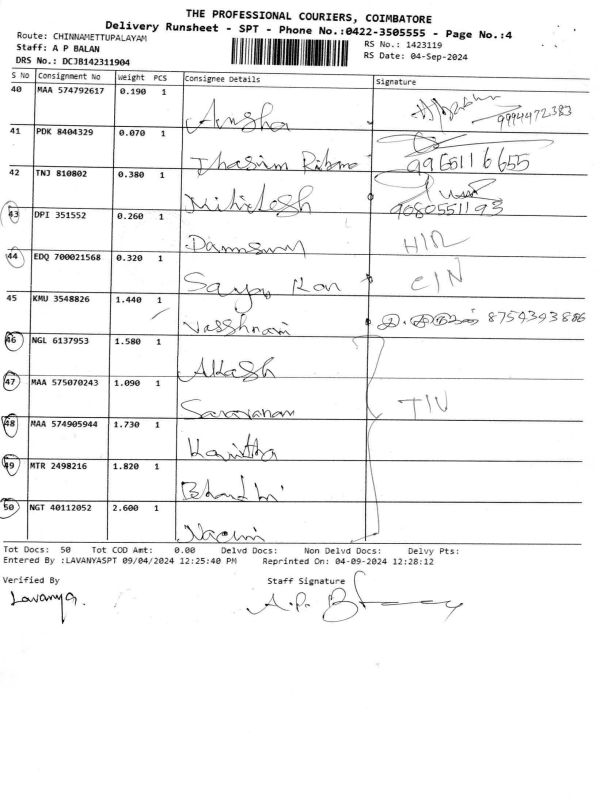 THE PROFESSIONAL COURIERS, COIMBATORE
Delivery Runsheet - SPT - Phone No.:0422-3505555 - Page No.:4
Route: CHINNAMETTUPALAYAM
RS No.: 1423119
Staff: A P BALAN
RS Date: 04-Sep-2024
DRS No.: DCJB142311904
S No Consignment No Weight PCS Consignee Details Signature
40 MAA 574792617 0.190 1 Anusha 9994472383
41 PDK 8404329 0.070 1 Jhasim 9965116655
42 TNJ 810802 0.380 1 9080551193
43 DPI 351552 0.260 1
44 EDQ 700021568 0.320 1
45 KMU 3548826 1.440 1 8754393886
46 NGL 6137953 1.580 1 AKash
47 MAA 575070243 1.090 1 Saravanan
48 MAA 574905944 1.730 1 Kavitha
49 MTR 2498216 1.820 1
50 NGT 40112052 2.600 1
Tot Docs: 50 Tot COD Amt: 0.00 Delvd Docs: Non Delvd Docs: Delvy Pts:
Entered By :LAVANYASPT 09/04/2024 12:25:40 PM Reprinted On: 04-09-2024 12:28:12
Verified By Staff Signature
Lavanya. A.P.